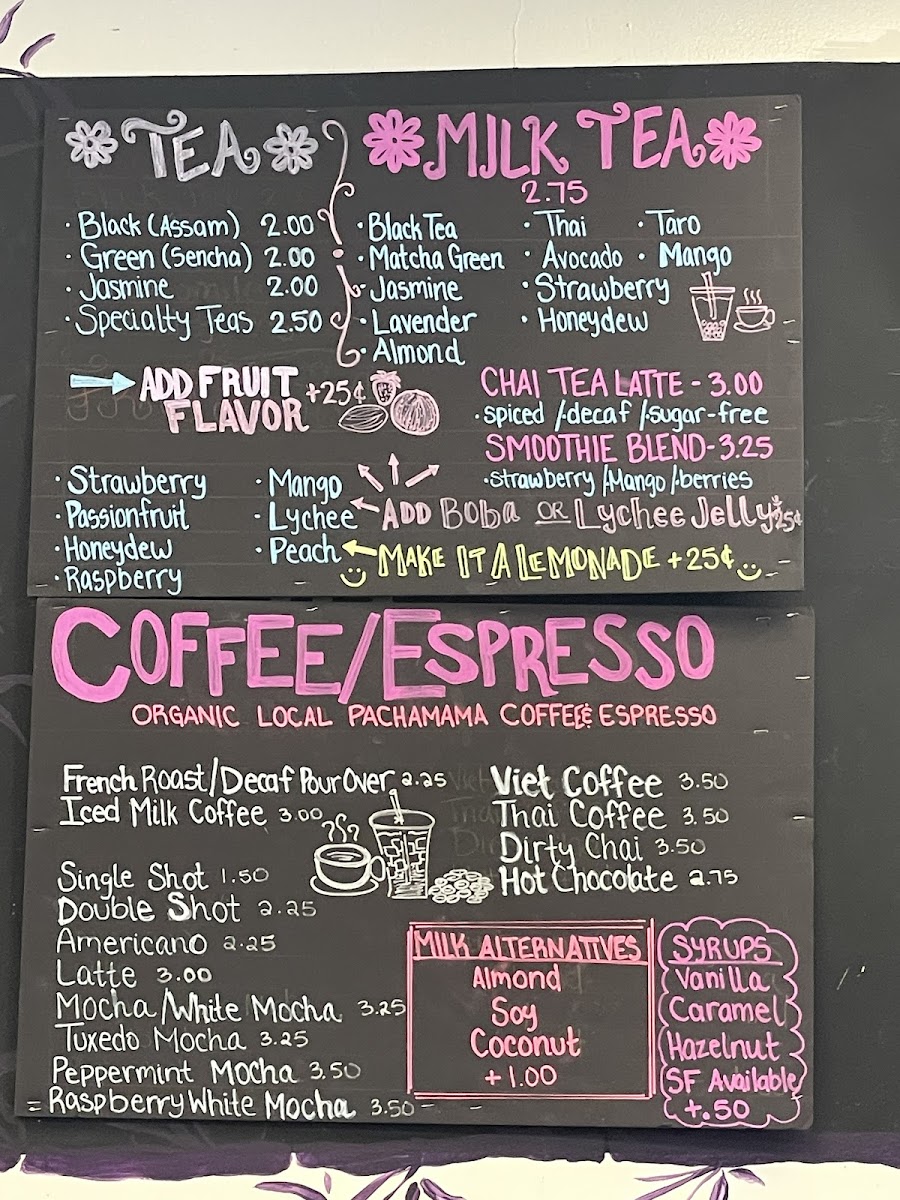 TEA
Black (Assam) 2.00
Green (Sencha) 2.00
Jasmine 2.00
Specialty Teas 2.50
ADD FRUIT FLAVOR +25¢
Strawberry
Passionfruit
Honeydew
Raspberry
Mango
Lychee
Peach
MILK TEA
2.75
Black Tea
Matcha Green
Jasmine
Lavender
Almond
Thai
Avocado
Strawberry
Honeydew
Taro
Mango
CHAI TEA LATTE - 3.00
·spiced /·decaf /·sugar-free
SMOOTHIE BLEND-3.25
·strawberry /·Mango /·berries
ADD BOBA OR Lychee Jelly 25¢
MAKE IT A LEMONADE +25¢
COFFEE/ESPRESSO
ORGANIC LOCAL PACHAMAMA COFFEE & ESPRESSO
French Roast/Decaf Pour Over 2.25
Iced Milk Coffee 3.00
Single Shot 1.50
Double Shot 2.25
Americano 2.25
Latte 3.00
Mocha/White Mocha 3.25
Tuxedo Mocha 3.25
Peppermint Mocha 3.50
Raspberry White Mocha 3.50
Viet Coffee 3.50
Thai Coffee 3.50
Dirty Chai 3.50
Hot Chocolate 2.75
MILK ALTERNATIVES
Almond
Soy
Coconut
+1.00
SYRUPS
Vanilla
Caramel
Hazelnut
SF Available
+.50